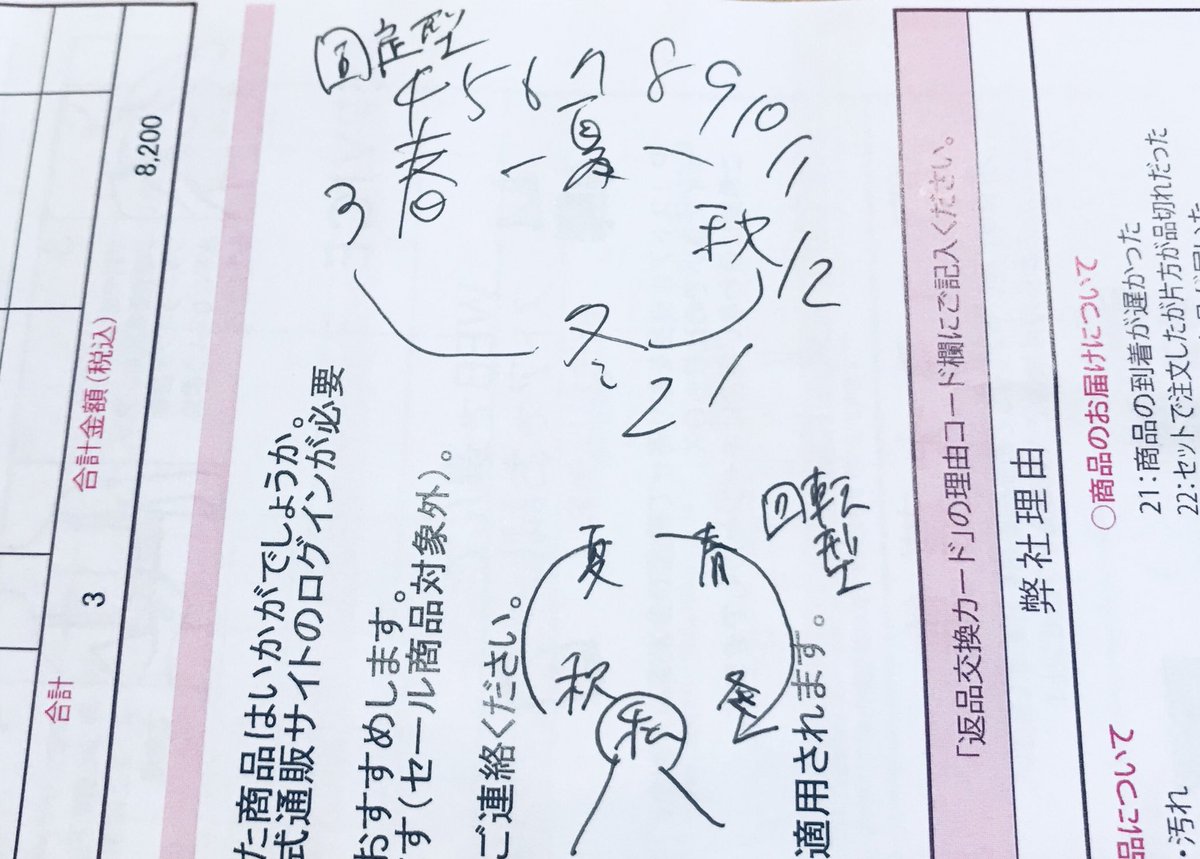 固定型
4 5 6 7 8 9 10 11
3 春 - 夏 - 秋 12
冬
2 1
回転型
夏 春
秋 冬
私
8,200
合計金額(税込)
3
合計
た商品はいかがでしょうか。
式通販サイトのログインが必要
おすすめします。
す(セール商品対象外)。
ご連絡ください。
適用されます。
「返品交換カード」の理由コード欄にご記入ください。
弊社理由
○商品のお届けについて
21:商品の到着が遅かった
22:セットで注文したが片方が品切れだった
品について
・汚れ